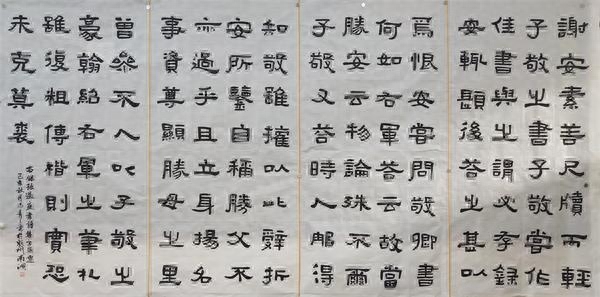 謝安素善尺牘而輕
子敬之書子敬嘗作
佳書與之謂必存錄
安輒題後荅之甚以
為恨安嘗問敬卿書
何如右軍荅云故當
勝安云物論殊不爾
子敬又荅時人那得
知敬雖權以此辭折
安所鑒自稱勝父不
亦過乎且立身揚名
事資尊顯勝母之里
曾參不入以子敬之
豪翰紹右軍之筆札
雖復粗傳楷則實恐
未克箕裘
右錄孫過庭書譜
己亥秋月